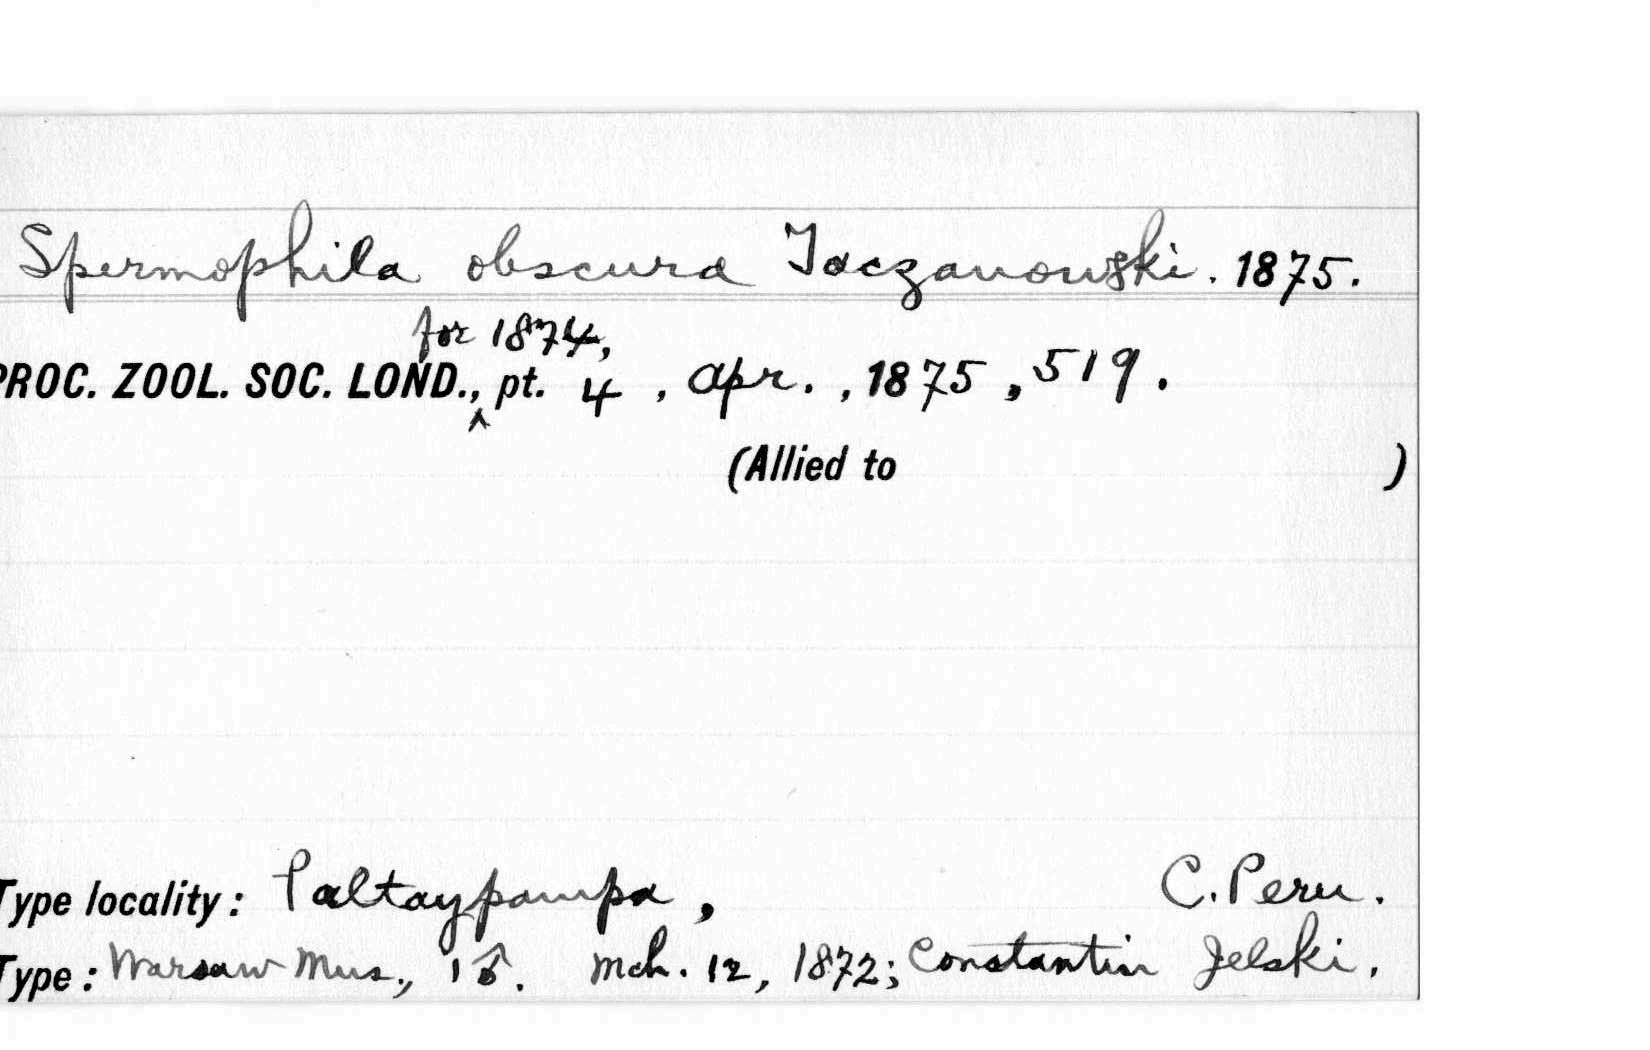 Spermophila obscura Taczanowski. 1875.
for 1874,
PROC. ZOOL. SOC. LOND., pt. 4 , Apr. , 1875 , 519 .
(Allied to )
Type locality: Paltaypampa , C. Peru .
Type: Warsaw Mus., 1 ♂. Mch. 12, 1872; Constantin Jelski .